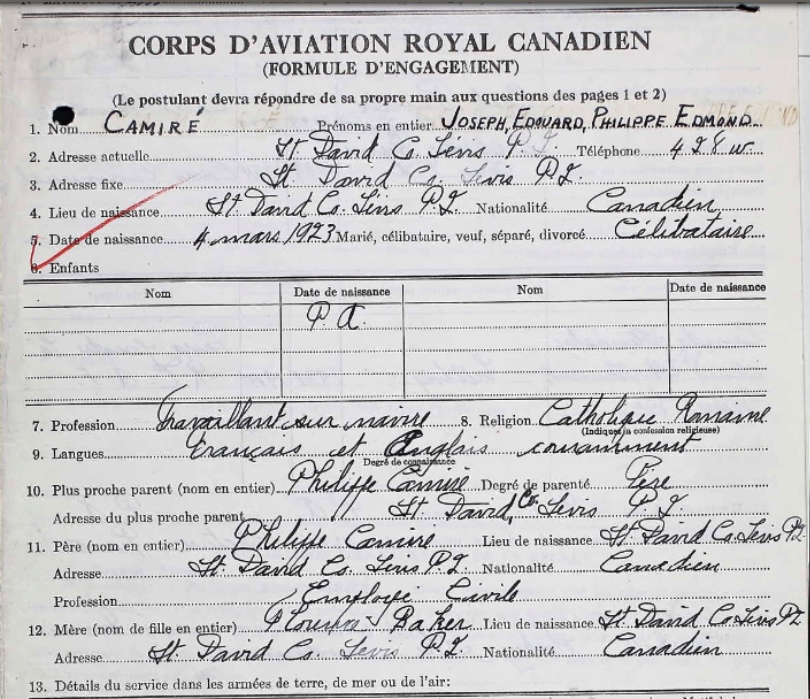 CORPS D'AVIATION ROYAL CANADIEN
(FORMULE D'ENGAGEMENT)
(Le postulant devra répondre de sa propre main aux questions des pages 1 et 2)
1. Nom CAMIRÉ Prénoms en entier JOSEPH, EDOUARD, PHILIPPE EDMOND
2. Adresse actuelle St David Co. Lévis P.Q. Téléphone 428 w.
3. Adresse fixe St. David Co. Lévis P.Q.
4. Lieu de naissance St David Co. Lévis P.Q. Nationalité Canadien
5. Date de naissance 4 mars 1923 Marié, célibataire, veuf, séparé, divorcé Célibataire
6. Enfants
Nom Date de naissance Nom Date de naissance
P. A.
7. Profession Travaillant sur navire 8. Religion Catholique Romaine
(Indiquer la confession religieuse)
9. Langues Français et Anglais couramment
Degré de connaissance
10. Plus proche parent (nom en entier) Philippe Camiré Degré de parenté Père
Adresse du plus proche parent St. David, Co. Lévis P.Q.
11. Père (nom en entier) Philippe Camiré Lieu de naissance St. David Co. Lévis P.Q.
Adresse St. David Co. Lévis P.Q. Nationalité Canadien
Profession Employé Civile
12. Mère (nom de fille en entier) Baker Lieu de naissance St David Co Lévis P.Q.
Adresse St David Co. Lévis P.Q. Nationalité Canadien
13. Détails du service dans les armées de terre, de mer ou de l'air: